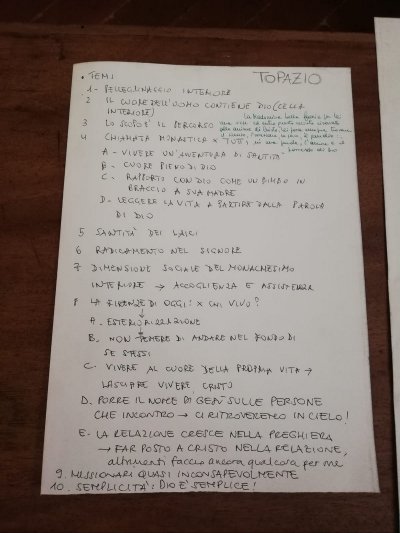 • TEMI
TOPAZIO
1- PELLEGRINAGGIO INTERIORE
2 IL CUORE DELL'UOMO CONTIENE DIO (CELLA
INTERIORE)
3 LO SCOPO È IL PERCORSO
4 CHIAMATA MONASTICA X TUTTI
A - VIVERE UN'AVVENTURA DI SANTITÀ
B - CUORE PIENO DI DIO
C - RAPPORTO CON DIO COME UN BIMBO IN
BRACCIO A SUA MADRE
D - LEGGERE LA VITA A PARTIRE DALLA PAROLA
DI DIO
5 SANTITÀ DEI LAICI
6 RADICAMENTO NEL SIGNORE
7 DIMENSIONE SOCIALE DEL MONACHESIMO
INTERIORE → ACCOGLIENZA E ASSISTENZA
8 LA FIRENZE DI OGGI: X CHI VIVO?
A. ESTERIORIZZAZIONE
B. NON TEMERE DI ANDARE NEL FONDO DI
SE STESSI
C. VIVERE AL CUORE DELLA PROPRIA VITA →
LASCIARE VIVERE CRISTO
D. PORRE IL NOME DI GESÙ SULLE PERSONE
CHE INCONTRO → CI RITROVEREMO IN CIELO!
E- LA RELAZIONE CRESCE NELLA PREGHIERA
→ FAR POSTO A CRISTO NELLA RELAZIONE,
altrimenti faccio ancora qualcosa per me
9. MISSIONARI QUASI INCONSAPEVOLMENTE
10. SEMPLICITÀ: DIO È SEMPLICE!